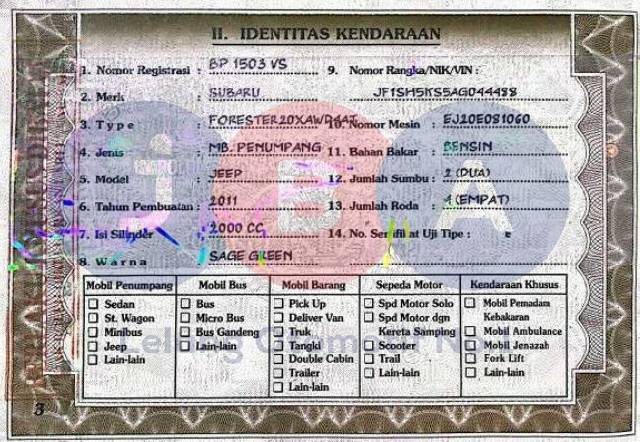 II. IDENTITAS KENDARAAN
1. Nomor Registrasi : BP 1503 VS
2. Merk : SUBARU
3. Type : FORESTER20XAWD4AT
4. Jenis : MB. PENUMPANG
5. Model : JEEP
6. Tahun Pembuatan : 2011
7. Isi Silinder : 2000 CC
8. Warna : SAGE GREEN
9. Nomor Rangka/NIK/VIN :
JF1SH5KS5AG044488
10. Nomor Mesin : EJ20E081060
11. Bahan Bakar : BENSIN
12. Jumlah Sumbu : 2 (DUA)
13. Jumlah Roda : 4 (EMPAT)
14. No. Sertifikat Uji Tipe :
Mobil Penumpang
Sedan
St. Wagon
Minibus
Jeep
Lain-lain
Mobil Bus
Bus
Micro Bus
Bus Gandeng
Lain-lain
Mobil Barang
Pick Up
Deliver Van
Truk
Tangki
Double Cabin
Trailer
Lain-lain
Sepeda Motor
Spd Motor Solo
Spd Motor dgn
Kereta Samping
Scooter
Trail
Lain-lain
Kendaraan Khusus
Mobil Pemadam
Kebakaran
Mobil Ambulance
Mobil Jenazah
Fork Lift
Lain-lain
JBA
3